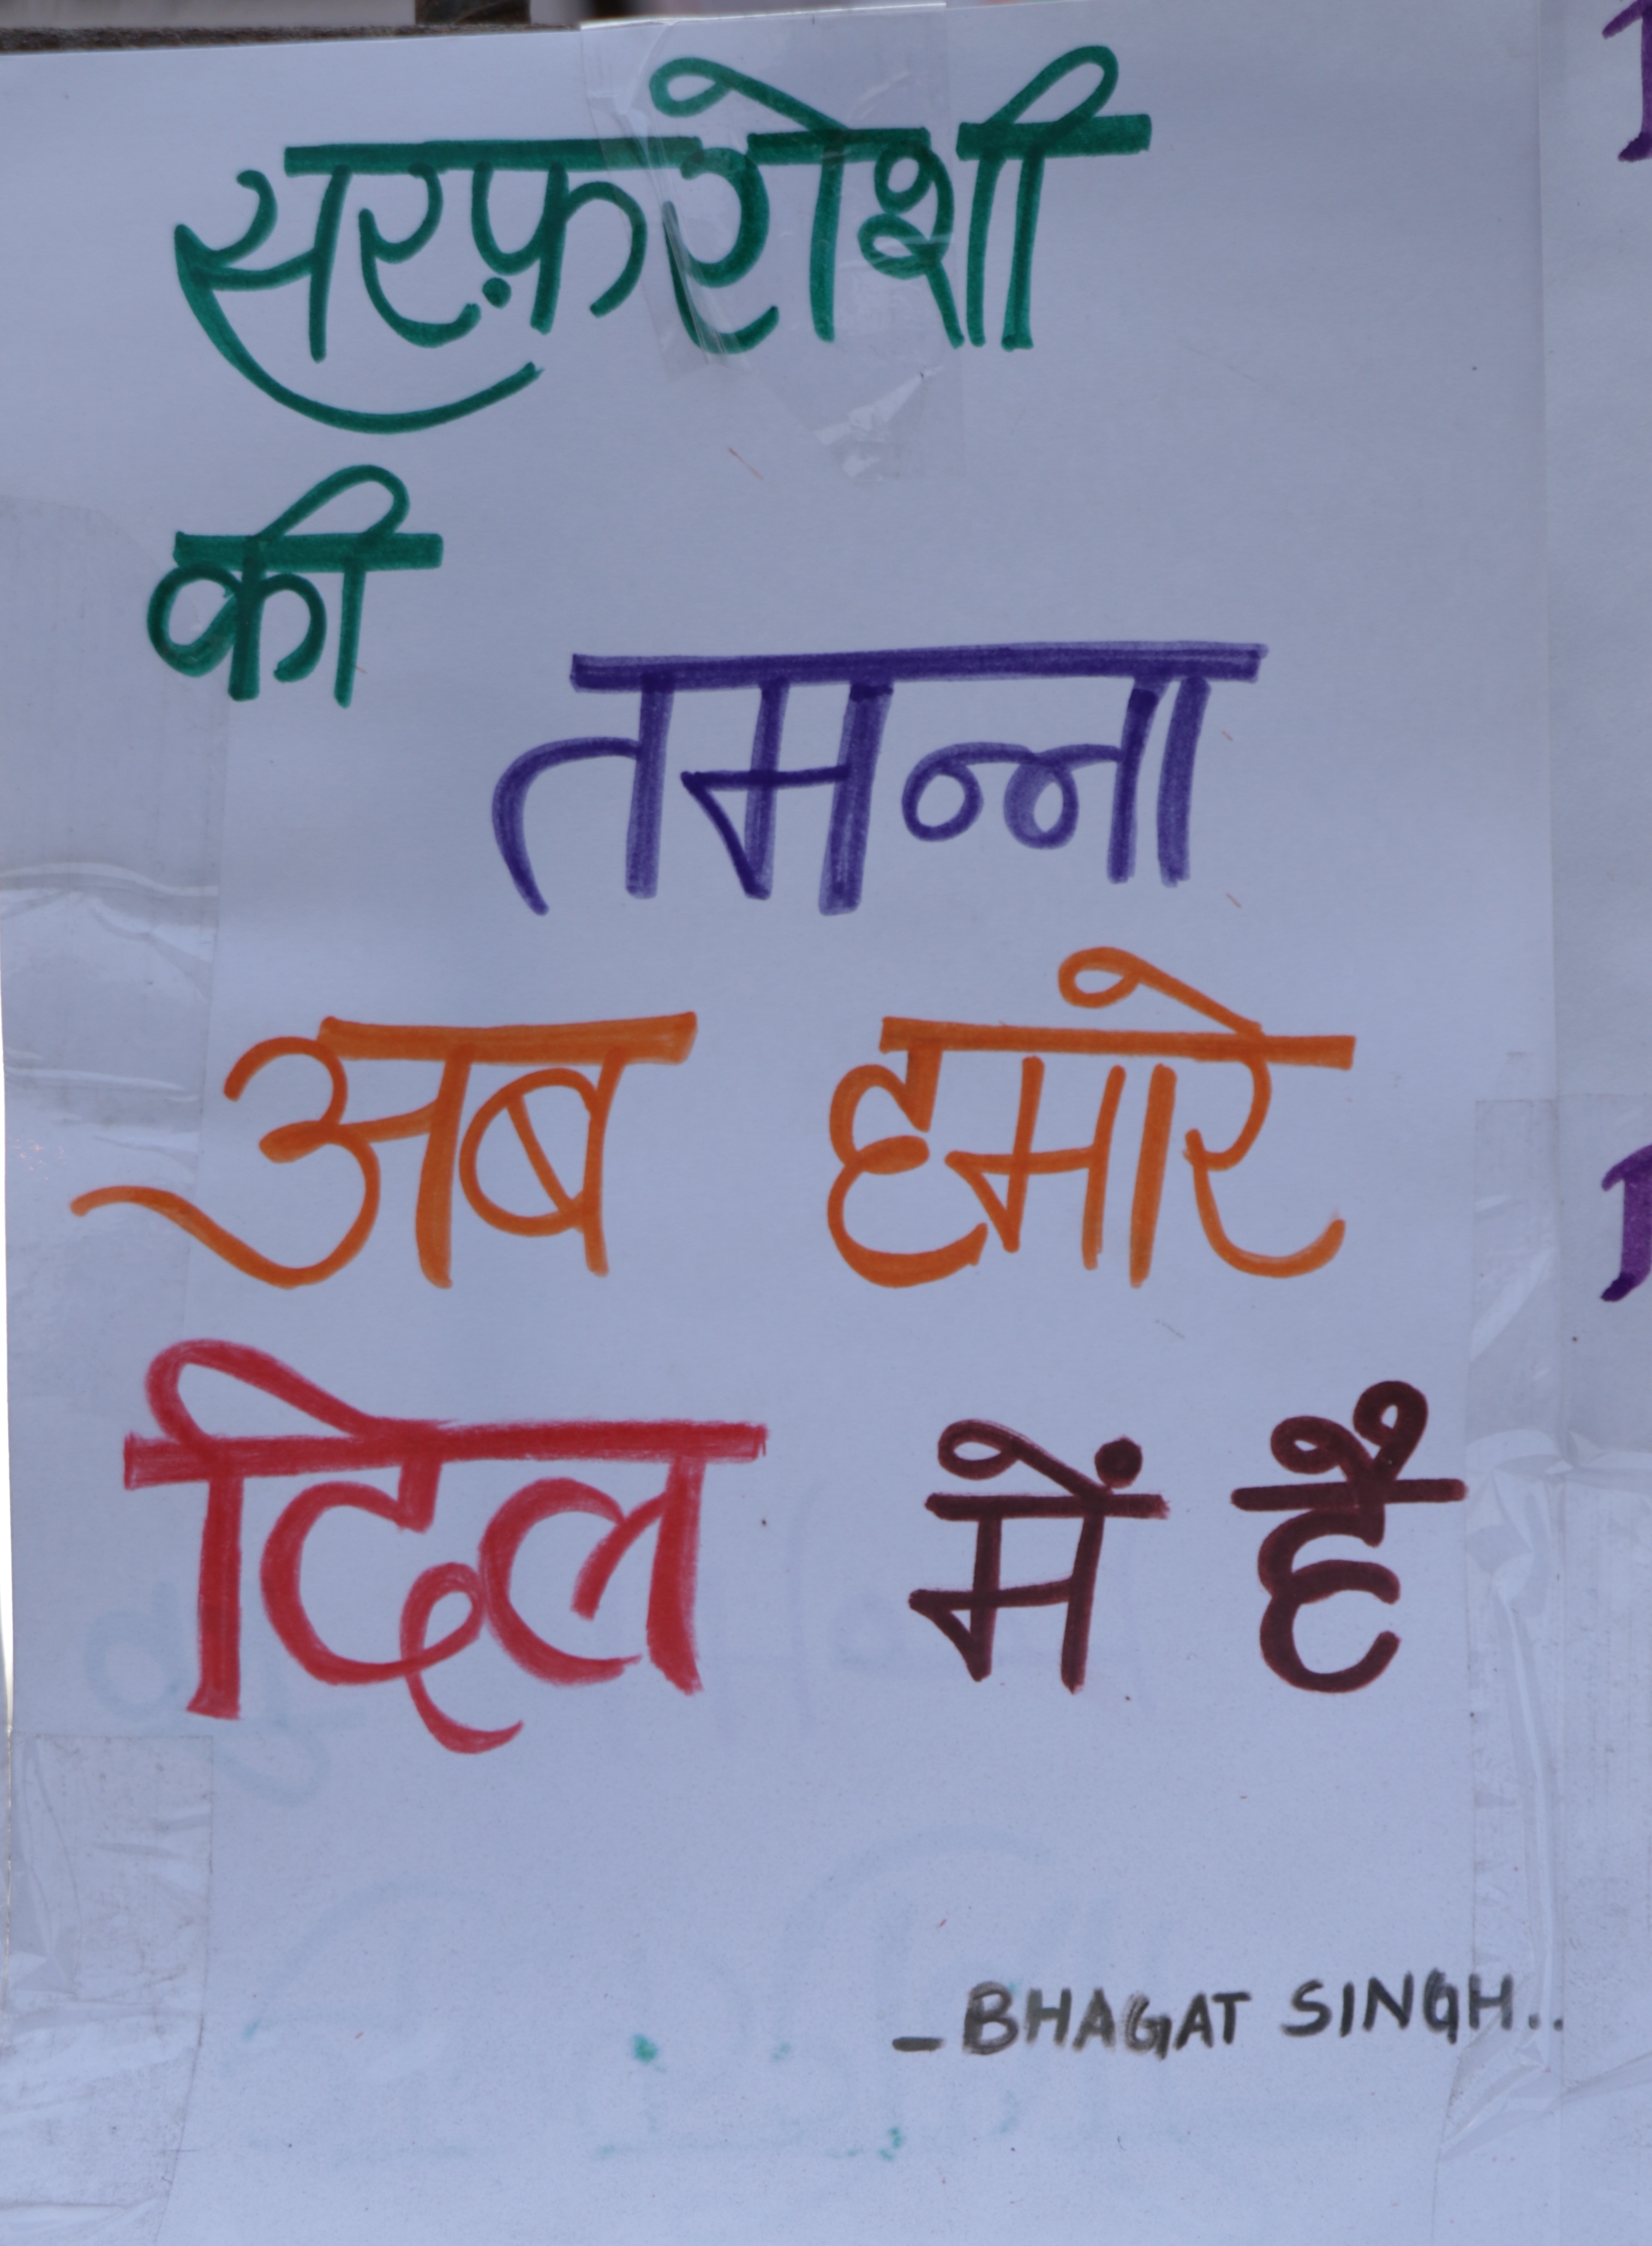 सरफ़रोशी
की
तमन्ना
अब हमारे
दिल में है
_BHAGAT SINGH..